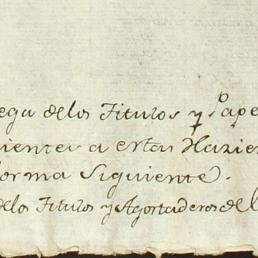 ega delos Titulos y Pape
ientes a estas Hazien
forma Siguiente.
delos Titulos y Agostaderos del